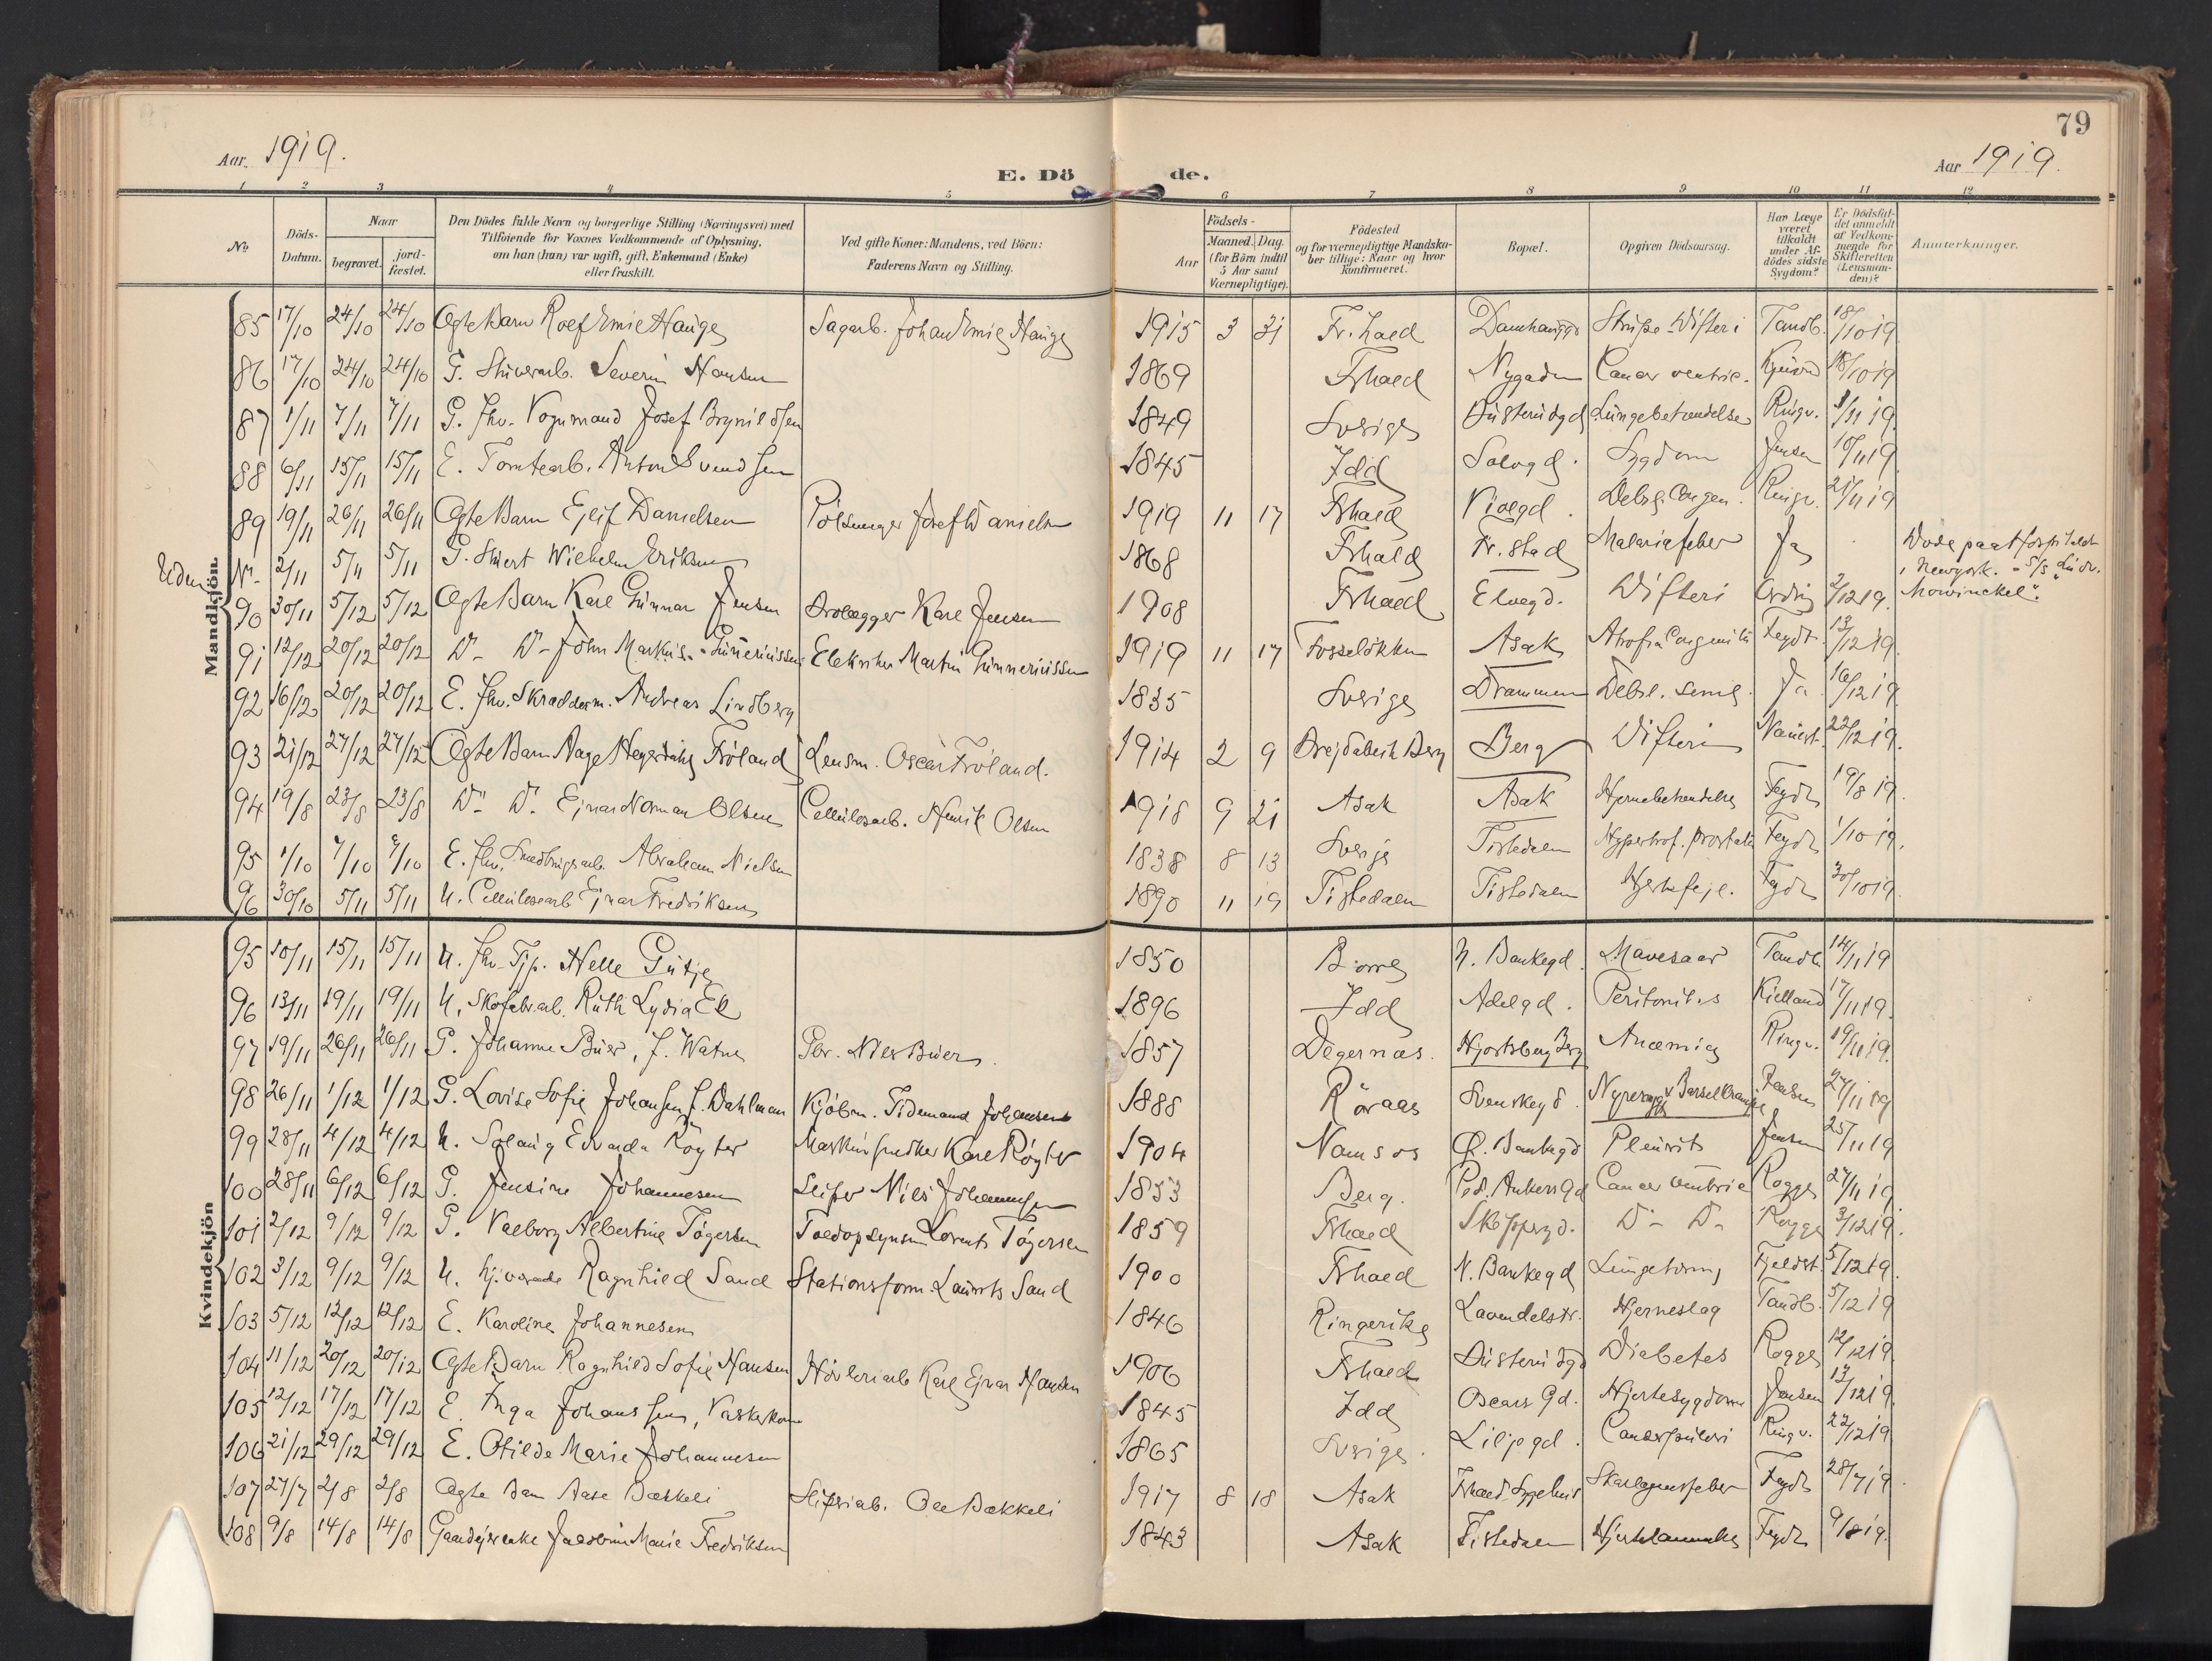 79
Aar. 1919.
E. Dö de.
Aar 1919.
1 2 3 4 5 6 7 8 9 10 11 12
No Döds-Datum. Naar begravet. jord-fæstet.
Den Dödes fulde Navn og borgerlige Stilling (Næringsvei) med
Tilföiende for Voxnes Vedkommende af Oplysning,
om han (hun) var ugift, gift, Enkemand (Enke)
eller fraskilt.
Ved gifte Koner: Mandens, ved Börn:
Faderens Navn og Stilling.
Födsels-
Aar Maaned. Dag.
(for Börn indtil
5 Aar samt
Værnepligtige).
Födested
og for værnepligtige Mandska-
ber tillige: Naar og hvor
konfirmeret.
Bopæl.
Opgiven Dödsaarsag.
Har Læge
været
tilkaldt
under Af-
dödes sidste
Sygdom?
Er Dödsfal-
det anmeldt
af Vedkom-
mende for
Skifteretten
(Lensman-
den)?
Anmærkninger.
Mandkjön.
85 17/10 24/10 24/10 Ægte Barn Rolf Emil Hauge Sagarb. Johan Emil Hauge 1915 3 31 Fr.hald Damhauggd Strube Difteri Tandb. 18/10 19
86 17/10 24/10 24/10 G. Stuverarb. Severin Hansen 1869 Frhald Nygaden Cancer ventric. 18/10 19
87 1/11 7/11 7/11 G. fhv. Vognmand Josef Brynildsen 1849 Sverige Lungebetændelse Ringv. 3/11 19.
88 6/11 15/11 15/11 E. Tomtearb. Anton Svendsen 1845 Idd Solvgd. Sygdom Jensen 10/11 19
89 19/11 26/11 26/11 Ægte Barn Ejlif Danielsen Pölsemager Josef Danielsen 1919 11 17 Frhald Violgd. Debil. Congen. Ringv. 21/11 19
Uden Nr. 2/11 5/11 5/11 G. Stuert Wilhelm Eriksen 1868 Frhald Fr.stad Malariafeber Ja Döde paa et hospital i Newyork. - S/S "Ludv. Mowinckel".
90 30/11 5/12 5/12 Ægte Barn Karl Gunnar Jensen Brolægger Karl Jensen 1908 Frhald Elvegd. Difteri Ording 2/12 19.
91 12/12 20/12 20/12 D- D- John Markus Gunneriussen Elektriker Martin Gunneriussen 1919 11 17 Fosselökken Asak Atrofia Congenita Feydt. 13/12 19.
92 16/12 20/12 20/12 E. fhv. Skrædderm. Andreas Lindberg 1835 Sverige Drammen Debil. senil. Ja 16/12 19.
93 21/12 27/12 27/12 Ægte Barn Aage Fröland Lensm. Oscar Fröland. 1914 2 9 Berg Berg Difteri 22/12 19.
94 19/8 23/8 23/8 D- D. Ejnar Norman Olsen Cellulosearb. Henrik Olsen 1918 9 21 Asak Asak Hjernebetændelse Feydt 19/8 19.
95 1/10 7/10 7/10 E. fhv. Abraham Nielsen 1838 8 13 Sverige Tistedalen Hypertrof. prostata Feydt 1/10 19.
96 30/10 5/11 5/11 U. Cellulosearb. Ejnar Fredriksen 1890 11 19 Tistedalen Tistedalen Hjertefejl. Feydt 30/10 19.
Kvindekjön
95 10/11 15/11 15/11 U. fhv. Tjp. Helle Gutje 1850 Borre N. Bankegd. Mavesaar Tandb. 14/11 19
96 13/11 19/11 19/11 U. Skofabr.arb. Ruth Lydia Ek 1896 Idd Adelgd. Peritonitis Kielland 17/11 19.
97 19/11 26/11 26/11 G. Johanne Buer, f. Watne Nils Buer. 1857 Degernæs. Hjortsberg Berg Anæmia Ringv. 19/11 19.
98 26/11 1/12 1/12 G. Lovise Sofie Johansen f. Dahlman Kjöbm. Tidemand Johansen 1888 Röraas Svenskegd. Barselkrampe Jensen 27/11 19
99 28/11 4/12 4/12 U. Solaug Edvarda Röyter Karl Röyter 1904 Namsos Ö. Bankegd Pleurit Jensen 25/11 19
100 28/11 6/12 6/12 G. Jensine Johannesen Sliper Nils Johannesen 1833 Berg. Ped. Ankers Gd Cancer ventric Rogge 27/11 19
101 2/12 9/12 9/12 G. Valborg Albertine Tögersen Toldopsynsm Lorents Tögersen 1859 Frhald Sköppergd. D- D- Rogge 3/12 19.
102 3/12 9/12 9/12 U. hj.værende Ragnhild Sand Stationsform. Laurits Sand 1900 Frhald N. Bankegd Fjeldst. 5/12 19.
103 5/12 12/12 12/12 E. Karoline Johannesen 1846 Ringerike Lavendelstr. Hjerneslag Tandb. 5/12 19
104 11/12 20/12 20/12 Ægte Barn Ragnhild Sofie Hansen Hövleriarb Karl Ejnar Hansen 1906 Frhald Diabetes Rogge 12/12 19.
105 12/12 17/12 17/12 E. Inga Johanssen, Vaskekone 1845 Idd Oscars Gd. Hjertesygdom Jensen 13/12 19.
106 21/12 29/12 29/12 E. Otilde Marie Johannesen 1865 Sverige. Liljegd. Ringv. 22/12 19
107 27/7 2/8 2/8 Ægte Barn Aase Bakkeli Sliperiarb. Ole Bakkeli 1917 8 18 Asak Frhald Sygehus Skarlagensfeber Feydt 28/7 19.
108 9/8 14/8 14/8 Gaardejerenke Jacobine Marie Fredriksen 1843 Asak Tistedalen Hjertelammelse Feydt 9/8 19.